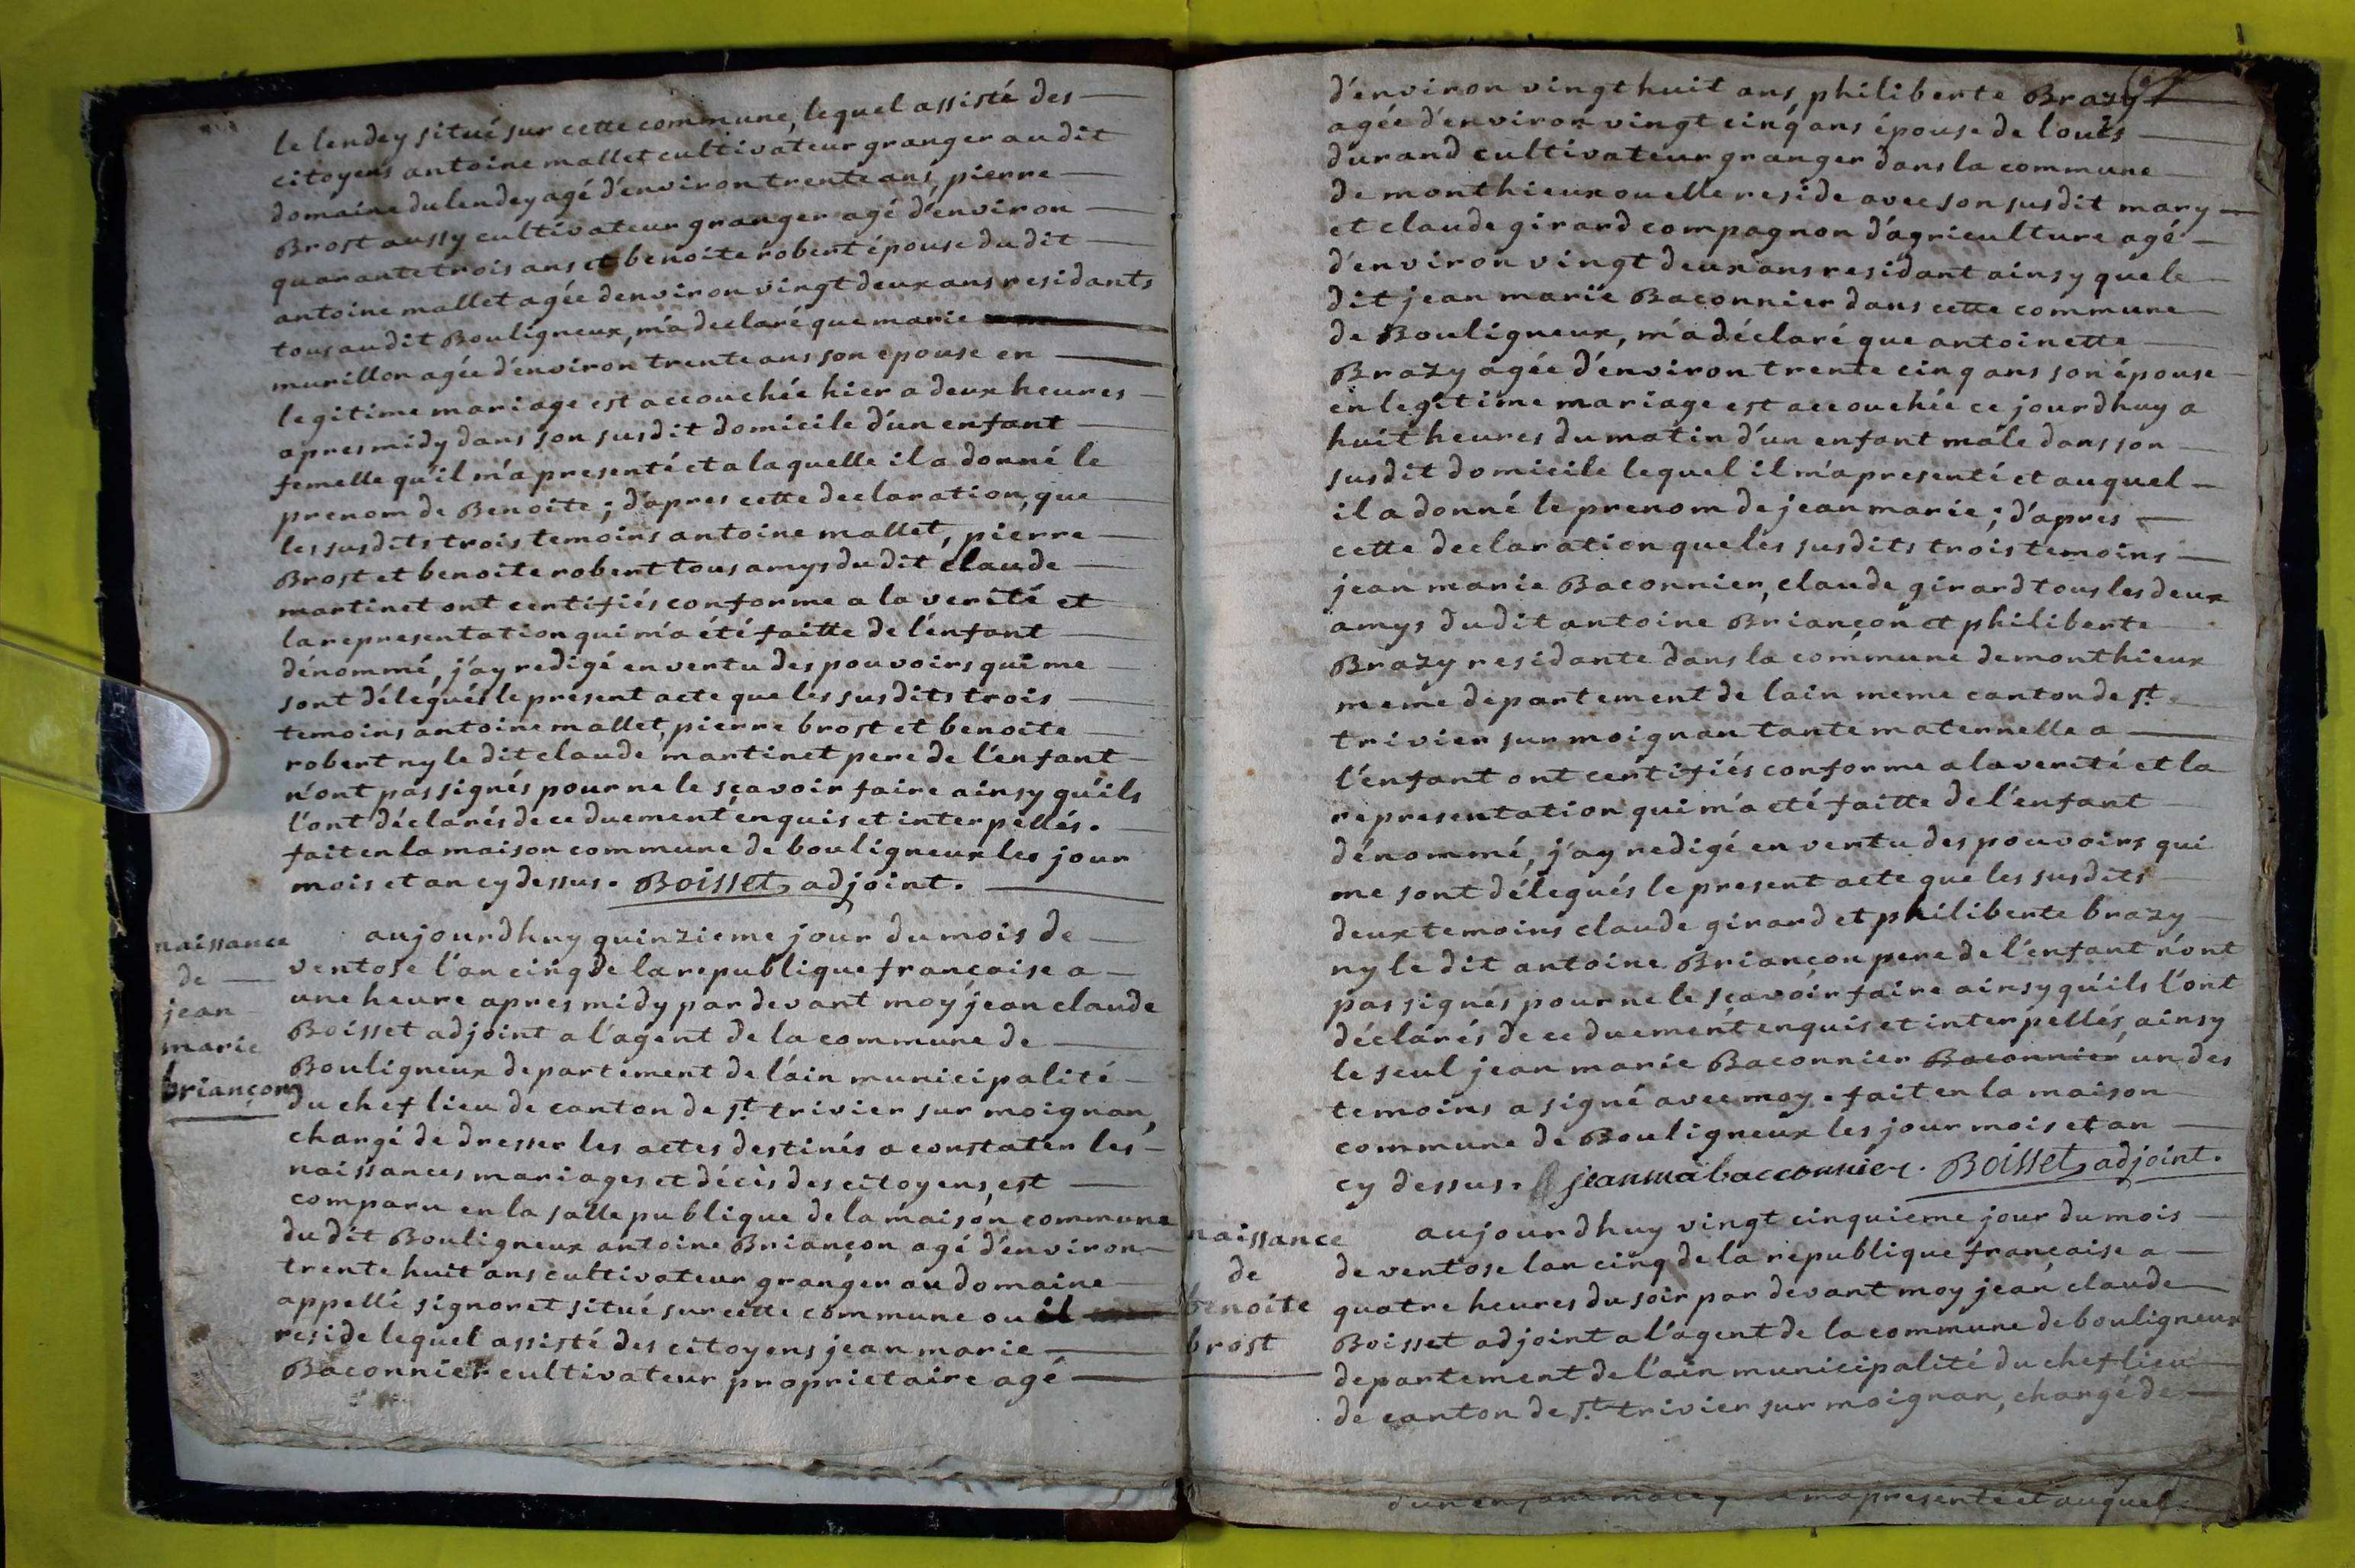 le lendey situé sur cette commune, lequel assisté des
citoyens antoine mallet cultivateur granger au dit
domaine du lendey agé d'environ trente ans, pierre
Brost aussy cultivateur granger agé d'environ
quarante trois ans et benoite robert épouse du dit
antoine mallet agée denviron vingt deux ans residants
tous au dit Bouligneux, m'a declaré que marie
murillon agée d'environ trente ans son epouse en
legitime mariage est accouchée hier a deux heures
apres midy dans son susdit domicile d'un enfant
femelle qu'il m'a presenté et a laquelle il a donné le
prenom de Benoite ; d'apres cette declaration, que
les susdits trois temoins antoine mallet, pierre
Brost et benoite robert tous amys du dit claude
martinet ont certifiés conforme a la verité et
la representation qui m'a été faitte de l'enfant
dénommé, j'ay redigé en vertu des pouvoirs qui me
sont délegués le present acte que les susdits trois
temoins antoine mallet, pierre brost et benoite
robert ny le dit claude martinet pere de l'enfant
n'ont pas signés pour ne le sçavoir faire ainsy qu'ils
l'ont déclarés de ce duement enquis et interpellés.
fait en la maison commune de bouligneux les jour
mois et an cy dessus. Boisset adjoint.
naissance
de
jean
marie
briançon
aujourdhuy quinzieme jour du mois de
ventose l'an cinq de la republique française a
une heure apres midy par devant moy jean claude
Boisset adjoint a l'agent de la commune de
Bouligneux departement de l'ain municipalité
du chef lieu de canton de st trivier sur moignan,
chargé de dresser les actes destinés a constater les
naissances mariages et décès des citoyens, est
comparu en la salle publique de la maison commune
du dit Bouligneux antoine Briançon agé d'environ
trente huit ans cultivateur granger au domaine
appellé signoret situé sur cette commune ou il
reside lequel assisté des citoyens jean marie
Baconnier cultivateur proprietaire agé
d'environ vingt huit ans, philiberte Brazy
agée d'environ vingt cinq ans épouse de louis
durand cultivateur granger dans la commune
de monthieux ou elle reside avec son susdit mary
et claude girard compagnon d'agriculture agé
d'environ vingt deux ans residant ainsy que le
dit jean marie Baconnier dans cette commune
de Bouligneux, m'a déclaré que antoinette
Brazy agée d'environ trente cinq ans son épouse
en legitime mariage est accouchée ce jourdhuy a
huit heures du matin d'un enfant mâle dans son
susdit domicile lequel il m'a presenté et auquel
il a donné le prenom de jean marie ; d'apres
cette declaration que les susdits trois temoins
jean marie Baconnier, claude girard tous les deux
amys du dit antoine Briançon et philiberte
Brazy residante dans la commune de monthieux
meme departement de lain meme canton de st
trivier sur moignan tante maternelle a
l'enfant ont certifiés conforme a la verité et la
representation qui m'a eté faitte de l'enfant
dénommé, j'ay redigé en vertu des pouvoirs qui
me sont délegués le present acte que les susdits
deux temoins claude girard et philiberte brazy
ny le dit antoine Briançon pere de l'enfant n'ont
pas signés pour ne le sçavoir faire ainsy qu'ils l'ont
déclarés de ce duement enquis et interpellés, ainsy
le seul jean marie Baconnier Baconnier un des
temoins a signé avec moy. fait en la maison
commune de Bouligneux les jour mois et an
cy dessus. jeanma bacconnier. Boisset adjoint.
naissance
de
benoite
brost
aujourdhuy vingt cinquieme jour du mois
de ventose lan cinq de la republique française a
quatre heures du soir par devant moy jean claude
Boisset adjoint a l'agent de la commune de bouligneux
departement de l'ain municipalité du chef lieu
de canton de st trivier sur moignan, chargé de
m'a presenté et auquel